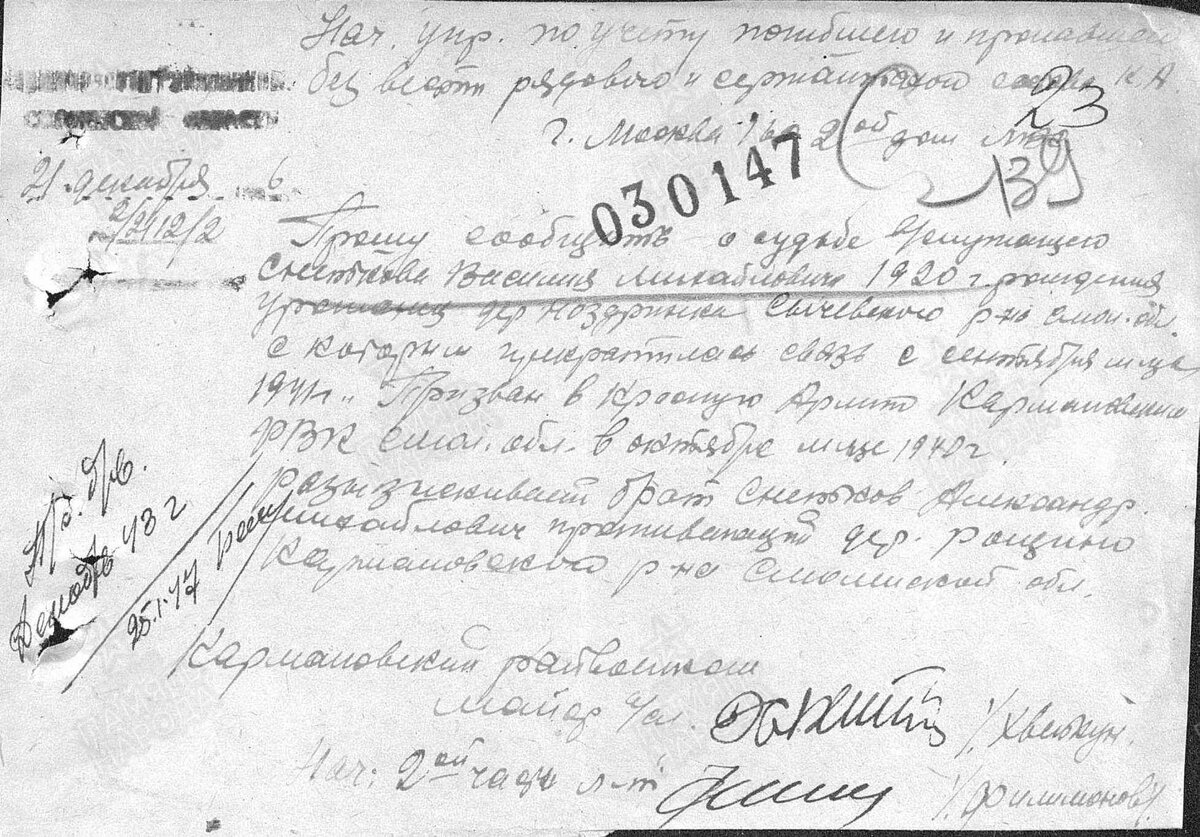 Нач. упр. по учету погибшего и пропавшего
без вести рядового и сержантского состава К.А.
23
г. Москва 2ой дом
139
030147
21 декабря 6
2/2112/2
Прошу сообщить о судьбе в/служащего
Снеткова Василия Михайловича 1920 г. рождения
урожанец дер Ноздринка Сычевского р-на смол. обл.
с которым прекратилась связь с сентября м-ца
1941г. Призван в Красную Армию Кармановским
РВК смол. обл. в октябре м-це 1940 г.
разыскивает брат Снетков Александр
Михайлович проживающий дер. Рощино
Кармановского р-на Смоленской обл.
Декабрь 43 г
25.1.47
Кармановский райвоенком
Майор
Нач: 2ой части л-т
/Филимонов/.